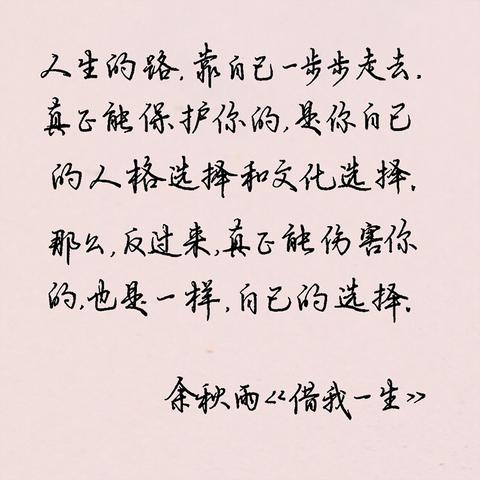 人生的路，靠自己一步步走去，
真正能保护你的，是你自己
的人格选择和文化选择。
那么，反过来，真正能伤害你
的，也是一样，自己的选择。
余秋雨《借我一生》